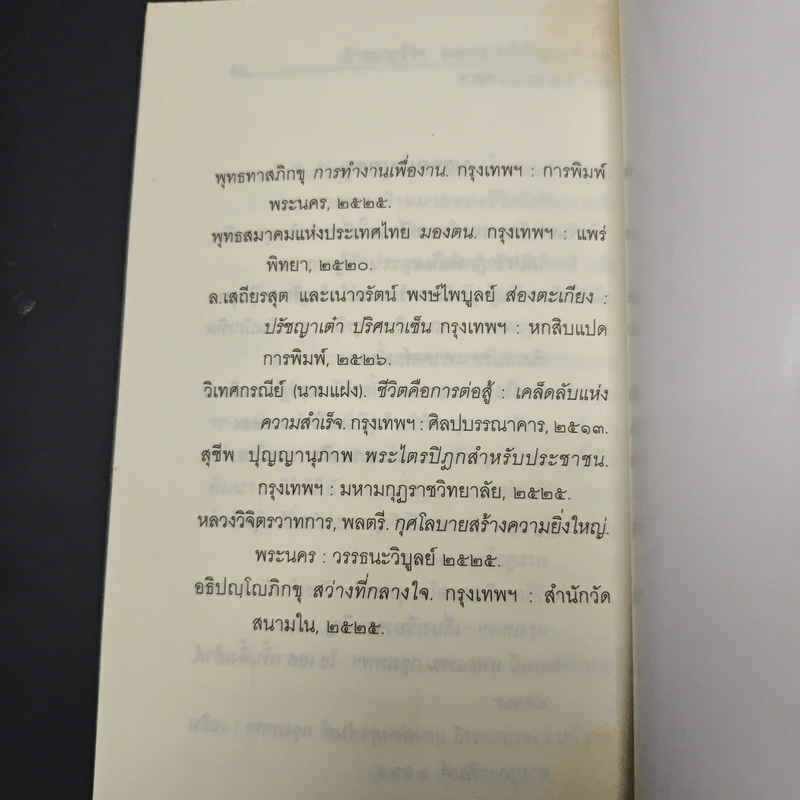 พุทธทาสภิกขุ การทำงานเพื่องาน. กรุงเทพฯ : การพิมพ์
พระนคร, ๒๕๒๕.
พุทธสมาคมแห่งประเทศไทย มองตน. กรุงเทพฯ : แพร่
พิทยา, ๒๕๒๐.
ล.เสถียรสุต และเนาวรัตน์ พงษ์ไพบูลย์ ส่องตะเกียง :
ปรัชญาเต๋า ปริศนาเซ็น กรุงเทพฯ : หกสิบแปด
การพิมพ์, ๒๕๒๖.
วิเทศกรณีย์ (นามแฝง). ชีวิตคือการต่อสู้ : เคล็ดลับแห่ง
ความสำเร็จ. กรุงเทพฯ : ศิลปบรรณาคาร, ๒๕๑๓.
สุชีพ ปุญญานุภาพ พระไตรปิฎกสำหรับประชาชน.
กรุงเทพฯ : มหามกุฏราชวิทยาลัย, ๒๕๒๕.
หลวงวิจิตรวาทการ, พลตรี. กุศโลบายสร้างความยิ่งใหญ่.
พระนคร : วรรธนะวิบูลย์ ๒๕๒๕.
อธิปญฺโญภิกขุ สว่างที่กลางใจ. กรุงเทพฯ : สำนักวัด
สนามใน, ๒๕๒๕.